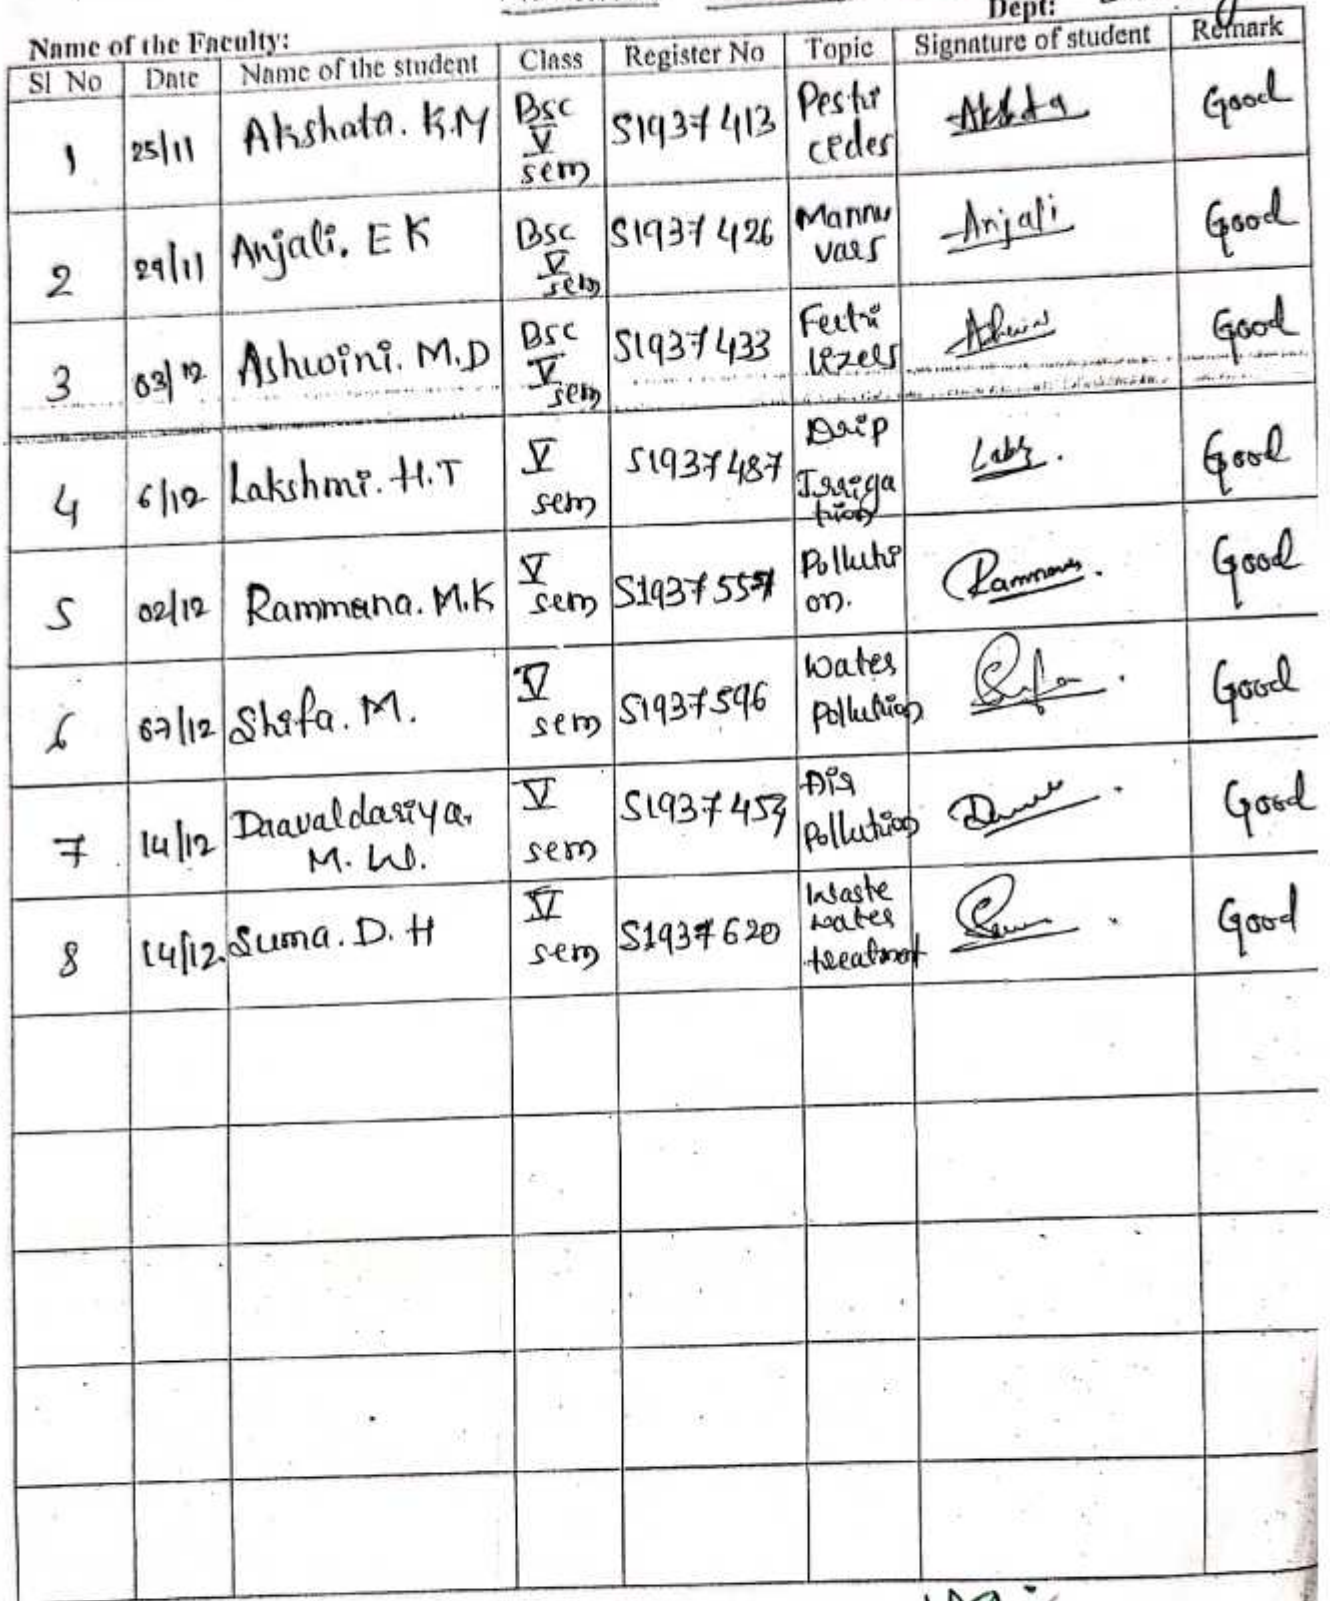 Dept:
Name of the Faculty:
Sl No Date Name of the student Class Register No Topic Signature of student Remark
1 25/11 Akshata. K.M Bsc V sem S1937413 Pesti cedes Akshta Good
2 29/11 Anjali. E K Bsc V sem S1937426 Mannu vars Anjali Good
3 03/12 Ashwini. M.D Bsc V sem S1937433 Ferti lizers Good
4 6/12 Lakshmi. H.T V sem S1937487 Drip Irriga tion Good
5 02/12 Rammana. M.K V sem S1937557 Polluti on. Rammana. Good
6 07/12 Shifa. M. V sem S1937596 Water Pollution Good
7 14/12 Daavaldariya. M. W. V sem S1937457 Air Pollution Good
8 14/12. Suma. D. H V sem S1937620 Waste water treatment Good